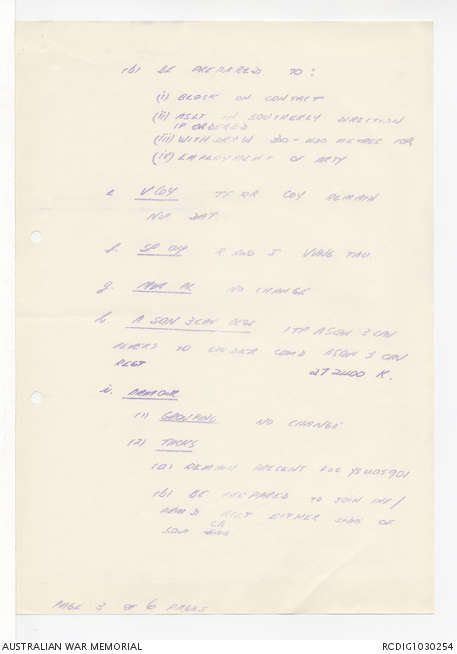 (b) BE PREPARED TO:
(i) BLOCK ON CONTACT
(ii) ASLT IN SOUTHERLY DIRECTION
IF ORDERED
(iii) WITHDRAW 300-400 METRES FOR
(iv) EMPLOYMENT OF ARTY
e. V COY TF OR COY REMAIN
NUI DAT
f. SP COY R AND J VUNG TAU
g. NO CHANGE
h. A SQN 3 CAV REGT 1 TP A SQN 3 CAV
REVERTS TO UNDER COMD A SQN 3 CAV
REGT 272400 K.
i. ARMOUR
(1) GROUPING NO CHANGE
(2) TASKS
(a) REMAIN PRESENT LOC YS405901
(b) BE PREPARED TO JOIN INF/
ARMD REGT EITHER SIDE OF
SONG
PAGE 3 OF 6 PAGES
AUSTRALIAN WAR MEMORIAL
RCDIG1030254